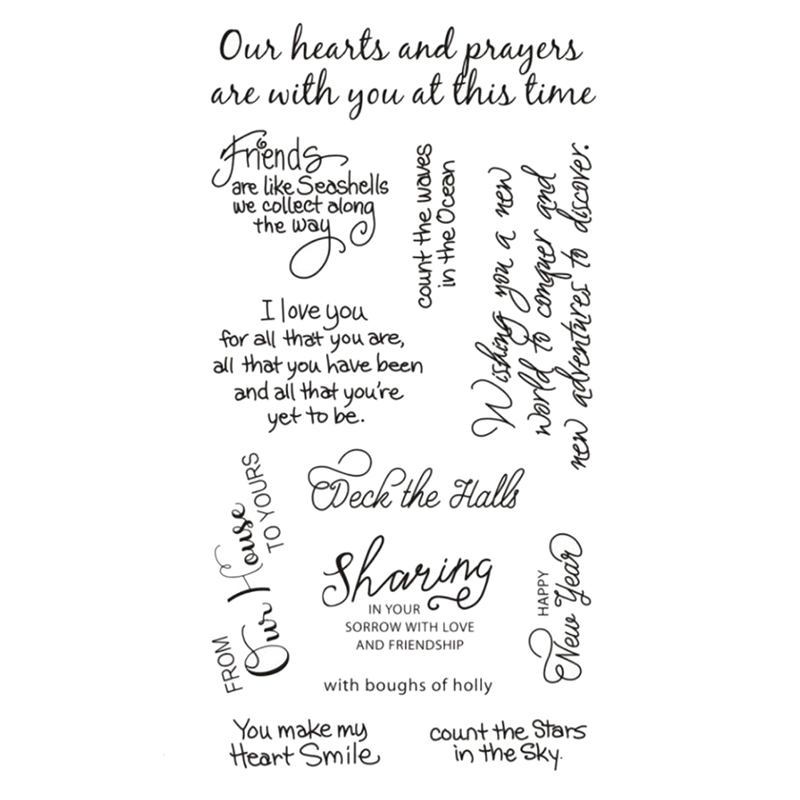 Our hearts and prayers
are with you at this time
Friends
are like Seashells
we collect along
the way
count the waves
in the Ocean
Wishing you a new
world to conquer and
new adventures to discover.
I love you
for all that you are,
all that you have been
and all that you're
yet to be.
Deck the Halls
FROM
Our House
TO YOURS
Sharing
IN YOUR
SORROW WITH LOVE
AND FRIENDSHIP
HAPPY
New Year
with boughs of holly
You make my
Heart Smile
count the Stars
in the Sky.